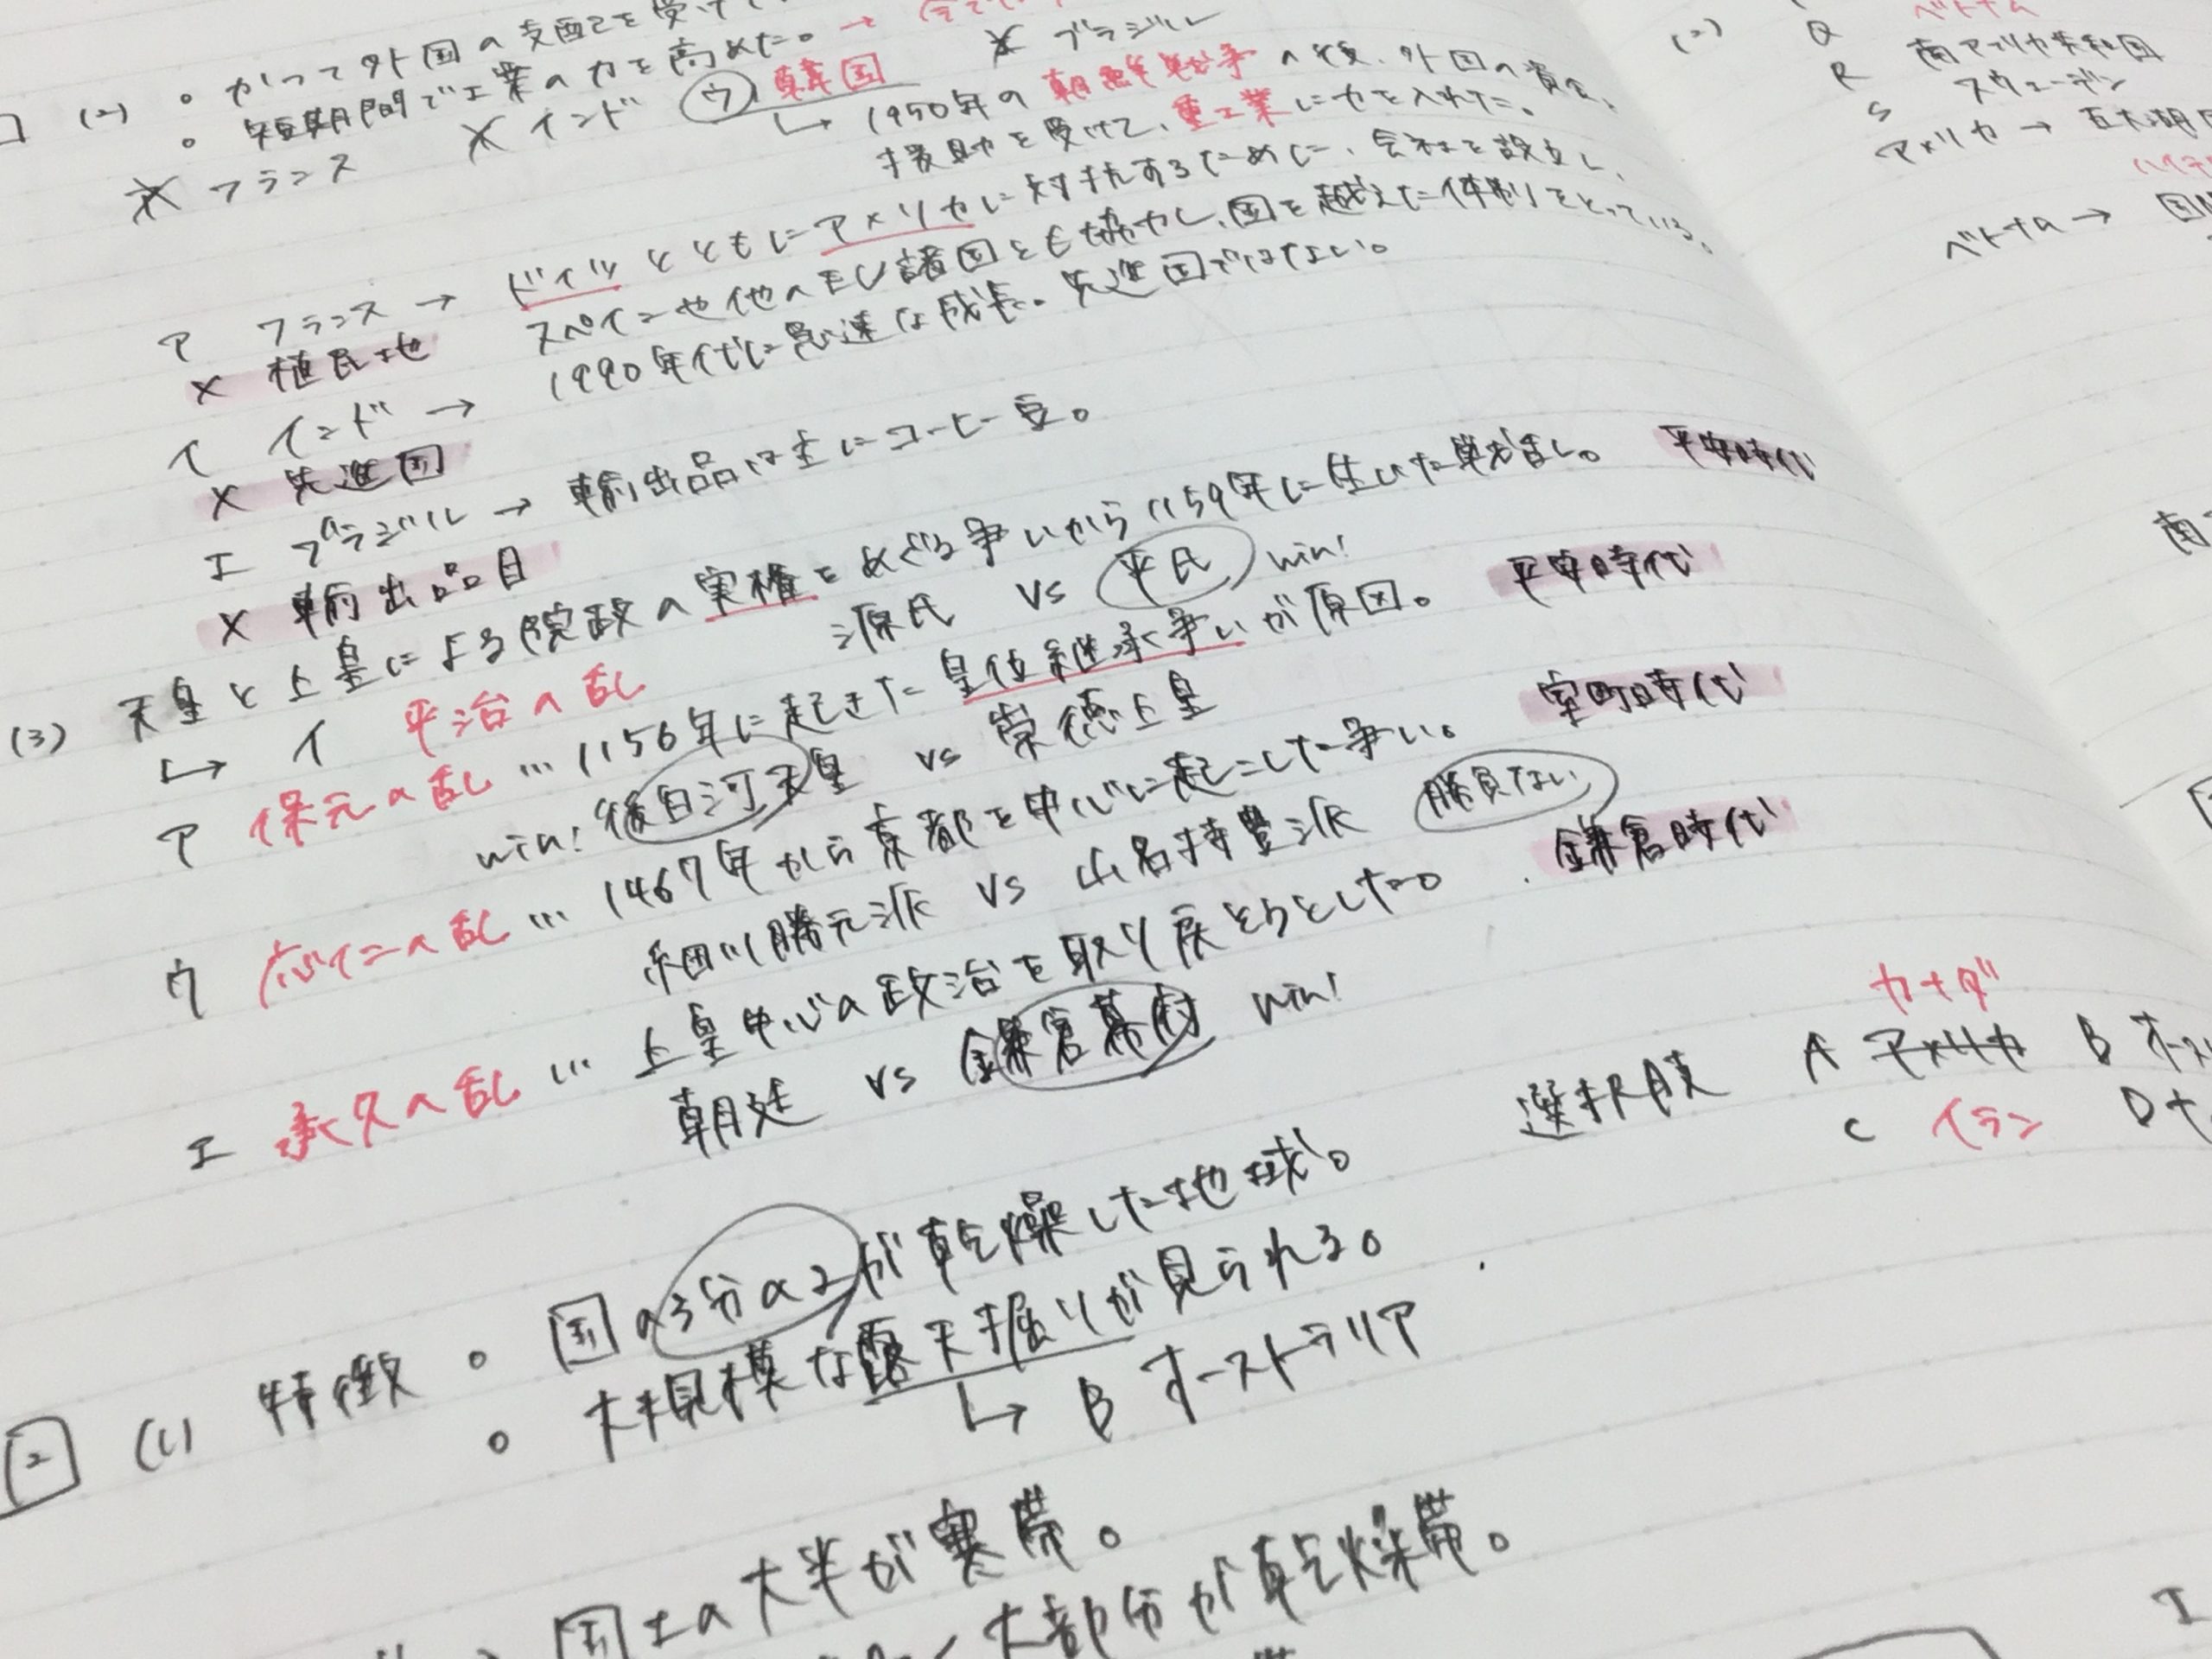 (2) 。かつて外国の支配を受けて
。短期間で工業の力を高めた。→
✕ フランス ✕ インド ウ 韓国 ✕ ブラジル
↳ 1950年の朝鮮戦争の後、外国の資金、
援助を受けて、重工業に力を入れた。
ア フランス → ドイツとともにアメリカに対抗するために、会社を設立し、
✕ 植民地 スペインや他のEU諸国とも協力し、国を越えた体制をとっている。
イ インド → 1990年代に急速な成長。先進国ではない。
✕ 先進国
エ ブラジル → 輸出品は主にコーヒー豆。
✕ 輸出品目
(3) 天皇と上皇による院政の実権をめぐる争いから1159年に生じた戦乱。 平安時代
↳ イ 平治の乱 源氏 vs 平氏 win!
ア 保元の乱 … 1156年に起きた皇位継承争いが原因。 平安時代
win! 後白河天皇 vs 崇徳上皇
ウ 応仁の乱 … 1467年から京都を中心に起こした争い。 室町時代
細川勝元派 vs 山名持豊派 勝負なし
エ 承久の乱 … 上皇中心の政治を取り戻そうとした。 鎌倉時代
朝廷 vs 鎌倉幕府 win!
2 (1) 特徴 。国の3分の2が乾燥した地域。
。大規模な露天掘りが見られる。
↳ B オーストラリア
選択肢 A アメリカ カナダ B オースト
C イラン D
国土の大半が寒帯。
大部分が乾燥帯。
(2) Q ベトナム
R 南アフリカ共和国
S スウェーデン
アメリカ → 五大湖
ベトナム →
南
エ